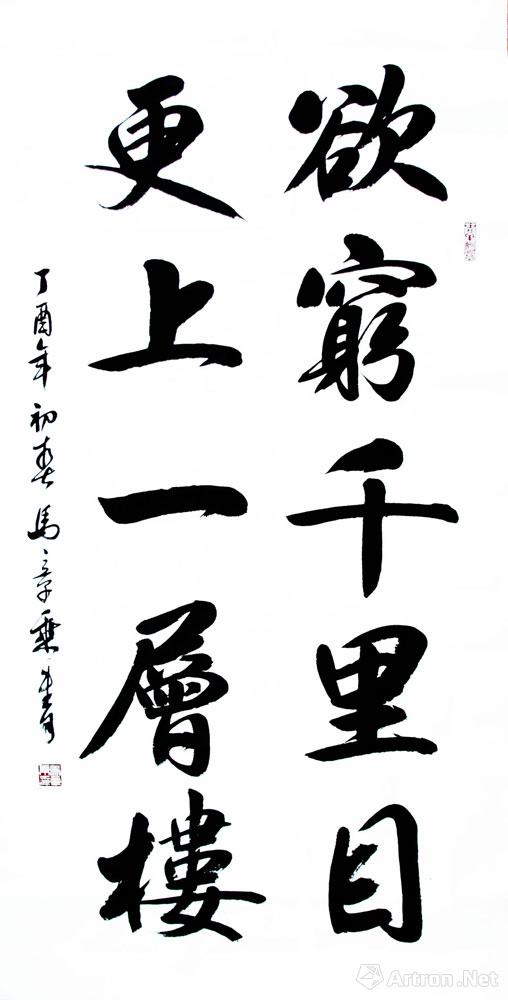 欲窮千里目
更上一層樓
丁酉年初春馬章乘書
Artron.Net